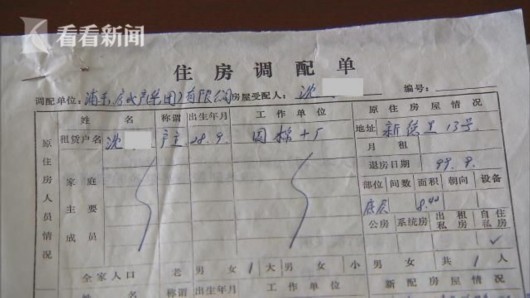 看看新闻
KNEWS
住房调配单
调配单位：浦东房地产集团有限公司 房屋受配人：沈 编号：
原住房人员情况 姓名 称谓 出生年月 工作单位 原住房屋情况
租赁户名 沈 户主 28.9. 退 地址 13号
月租
家庭主要成员 退房日期 99.9.
部位 间数 面积 朝向 设备
8.40
公房 系统房 出租私房 自住私房
✓
全家人口 老 男 女 1 大 男 女 小 男 女 共 1 人
姓名 称谓 出生年月 工作单位 新配房屋情况